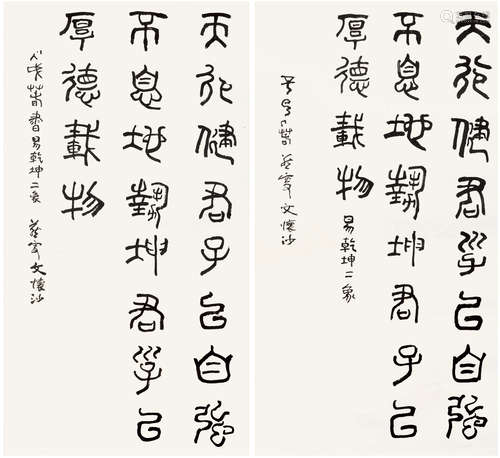 天行健君子以自強
不息地勢坤君子以
厚德載物 易乾坤二象
燕叟文懷沙
天行健君子以自強
不息地勢坤君子以
厚德載物
書易乾坤二象 燕叟文懷沙